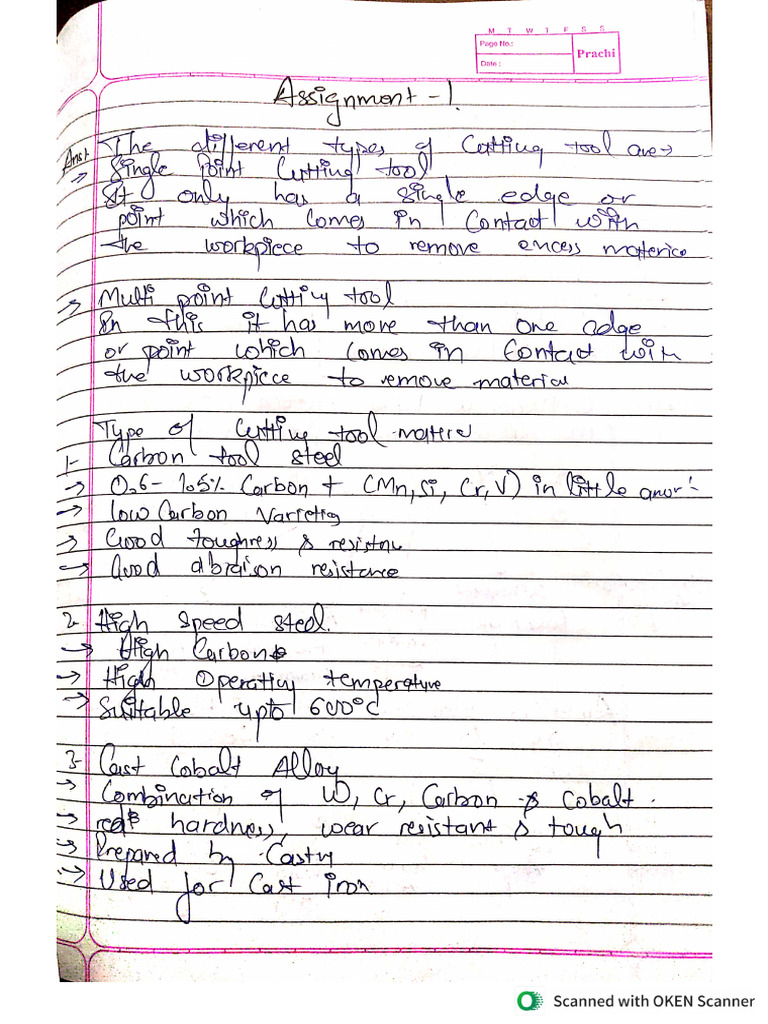 M T W T F S S
Page No.:
Prachi
Date:
Assignment - 1.
Ans1 The different types of Cutting tool are →
→ Single Point Cutting tool
It only has a single edge or
point which comes in contact with
the workpiece to remove excess material
→ Multi point Cutting tool
In this it has more than one edge
or point which comes in contact with
the workpiece to remove material
Type of Cutting tool material
1- Carbon tool steel
→ 0.6 - 1.5% Carbon + (Mn, Si, Cr, V) in little
→ low Carbon Varieties
→ Good toughness &
→ Good abraison resistance
2- High Speed steel.
→ High Carbon
→ High Operating temperature
→ Suitable upto 600°C
3- Cast Cobalt Alloy
→ Combination of W, Cr, Carbon & Cobalt.
→ red hardness, wear resistant & tough
→ Prepared by Casting
→ Used for Cast iron
Scanned with OKEN Scanner